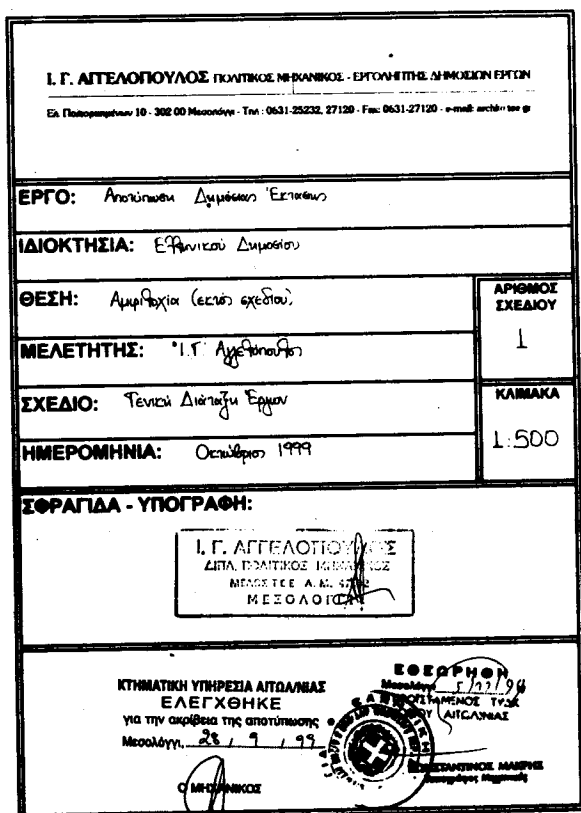 Ι. Γ. ΑΓΓΕΛΟΠΟΥΛΟΣ ΠΟΛΙΤΙΚΟΣ ΜΗΧΑΝΙΚΟΣ - ΕΡΓΟΛΗΠΤΗΣ ΔΗΜΟΣΙΩΝ ΕΡΓΩΝ
Ελ. Πολιορκημένων 10 - 302 00 Μεσολόγγι - Τηλ : 0631-25232, 27120 - Fax: 0631-27120 - e-mail:
ΕΡΓΟ: Αποτύπωση Δημόσιας Έκτασης
ΙΔΙΟΚΤΗΣΙΑ: Ελληνικού Δημοσίου
ΘΕΣΗ: Αμφιλοχία (εκτός σχεδίου)
ΑΡΙΘΜΟΣ ΣΧΕΔΙΟΥ
1
ΜΕΛΕΤΗΤΗΣ: Ι.Γ. Αγγελόπουλος
ΣΧΕΔΙΟ: Γενική Διάταξη Έργων
ΚΛΙΜΑΚΑ
1:500
ΗΜΕΡΟΜΗΝΙΑ: Οκτώβριος 1999
ΣΦΡΑΓΙΔΑ - ΥΠΟΓΡΑΦΗ:
Ι. Γ. ΑΓΓΕΛΟΠΟΥΛΟΣ
ΔΙΠΛ. ΠΟΛΙΤΙΚΟΣ ΜΗΧΑΝΙΚΟΣ
ΜΕΛΟΣ ΤΕΕ Α.Μ.
ΜΕΣΟΛΟΓΓΙ
ΚΤΗΜΑΤΙΚΗ ΥΠΗΡΕΣΙΑ ΑΙΤΩΛ/ΝΙΑΣ
ΕΛΕΓΧΘΗΚΕ
για την ακρίβεια της αποτύπωσης
Μεσολόγγι, 28 / 9 / 99
Ο ΜΗΧΑΝΙΚΟΣ
ΕΘΕΩΡΗΘΗ
Μεσολόγγι
ΠΡΟΪΣΤΑΜΕΝΟΣ ΤΥΔΚ
ΑΙΤΩΛ/ΝΙΑΣ
ΚΩΝΣΤΑΝΤΙΝΟΣ ΜΑΚΡΗΣ
Τοπογράφος Μηχανικός